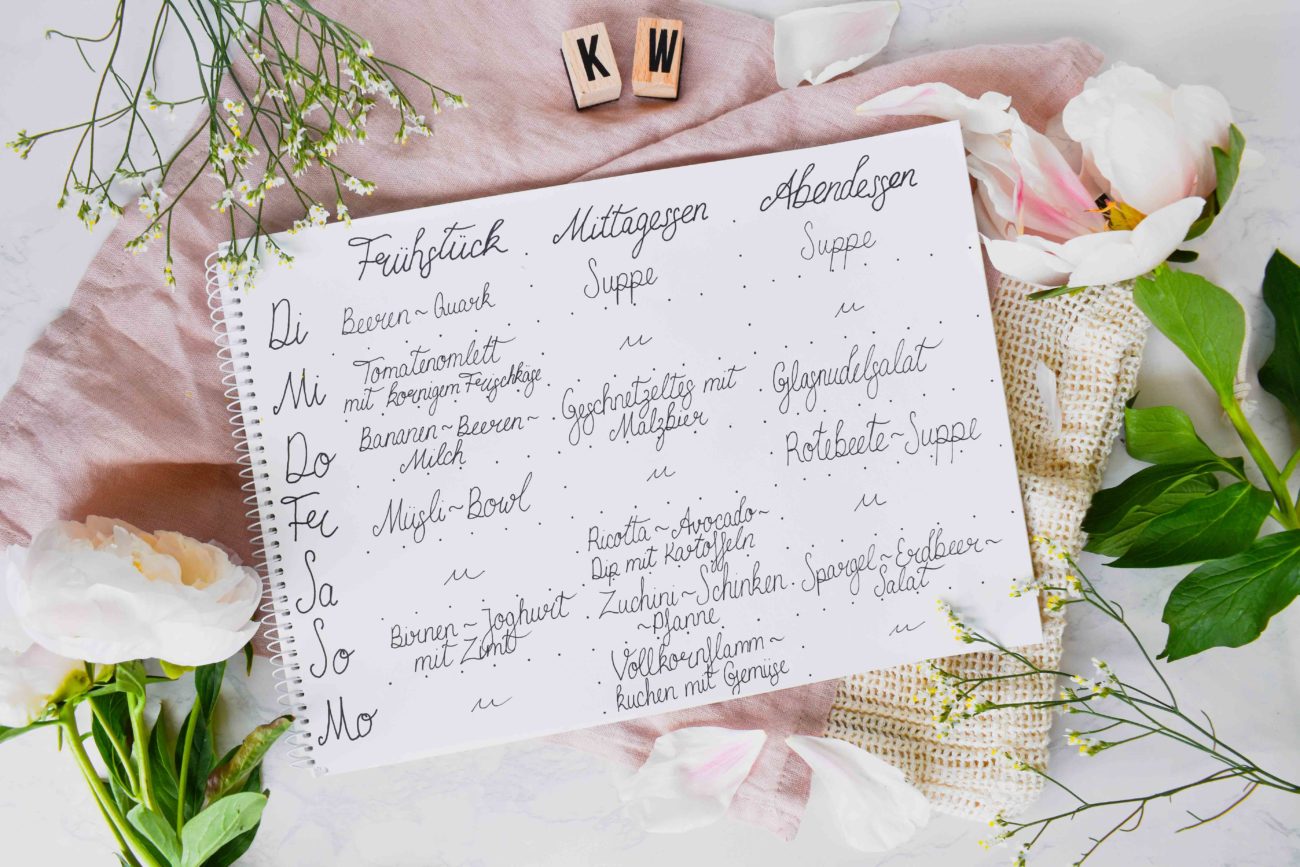 K W
Frühstück Mittagessen Abendessen
Di Beeren~Quark Suppe Suppe
Mi Tomatenomlett
mit kornigem Frischkäse
Do Bananen~Beeren~ Geschnetzeltes mit Glasnudelsalat
Milch Malzbier
Fr Müsli~Bowl Rotebeete~Suppe
Sa Ricotta~Avocado~
Dip mit Kartoffeln
So Birnen~Joghurt Zuchini~Schinken Spargel~Erdbeer~
mit Zimt ~Pfanne Salat
Mo Vollkornflamm~
kuchen mit Gemüse